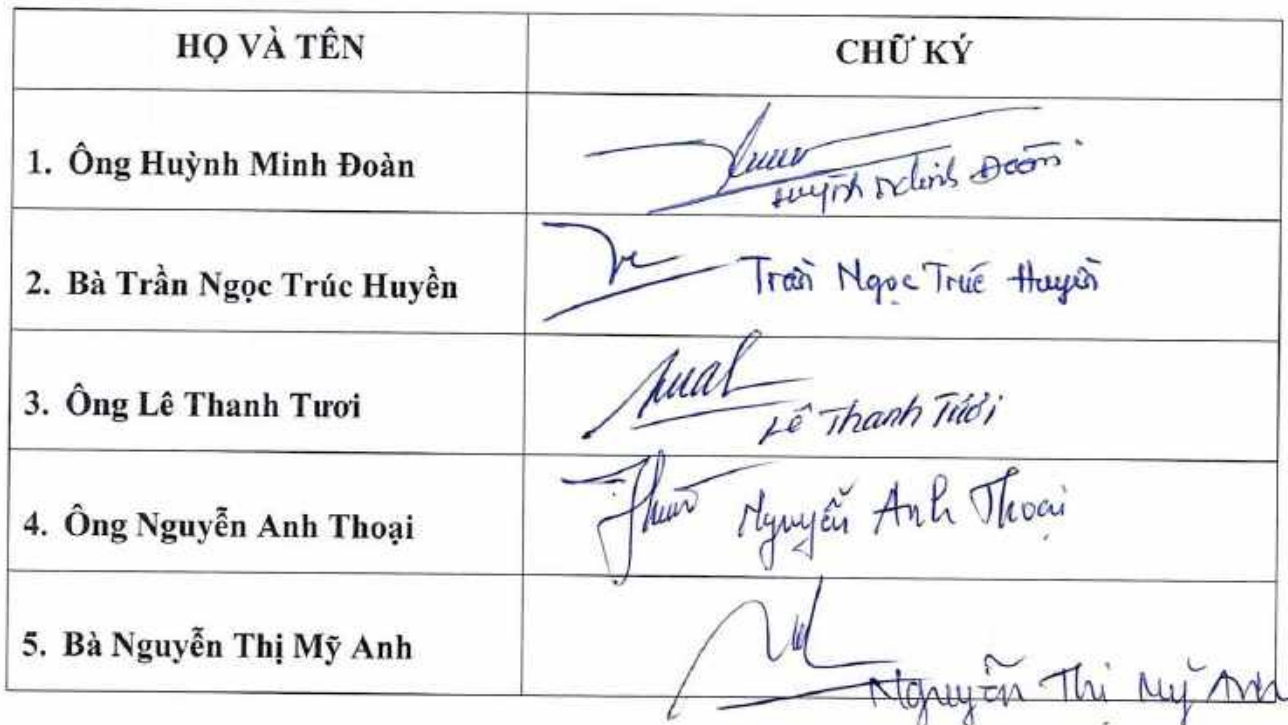 HỌ VÀ TÊN
CHỮ KÝ
1. Ông Huỳnh Minh Đoàn
Huỳnh Minh Đoàn
2. Bà Trần Ngọc Trúc Huyền
Trần Ngọc Trúc Huyền
3. Ông Lê Thanh Tươi
Lê Thanh Tươi
4. Ông Nguyễn Anh Thoại
Nguyễn Anh Thoại
5. Bà Nguyễn Thị Mỹ Anh
Nguyễn Thị Mỹ Anh